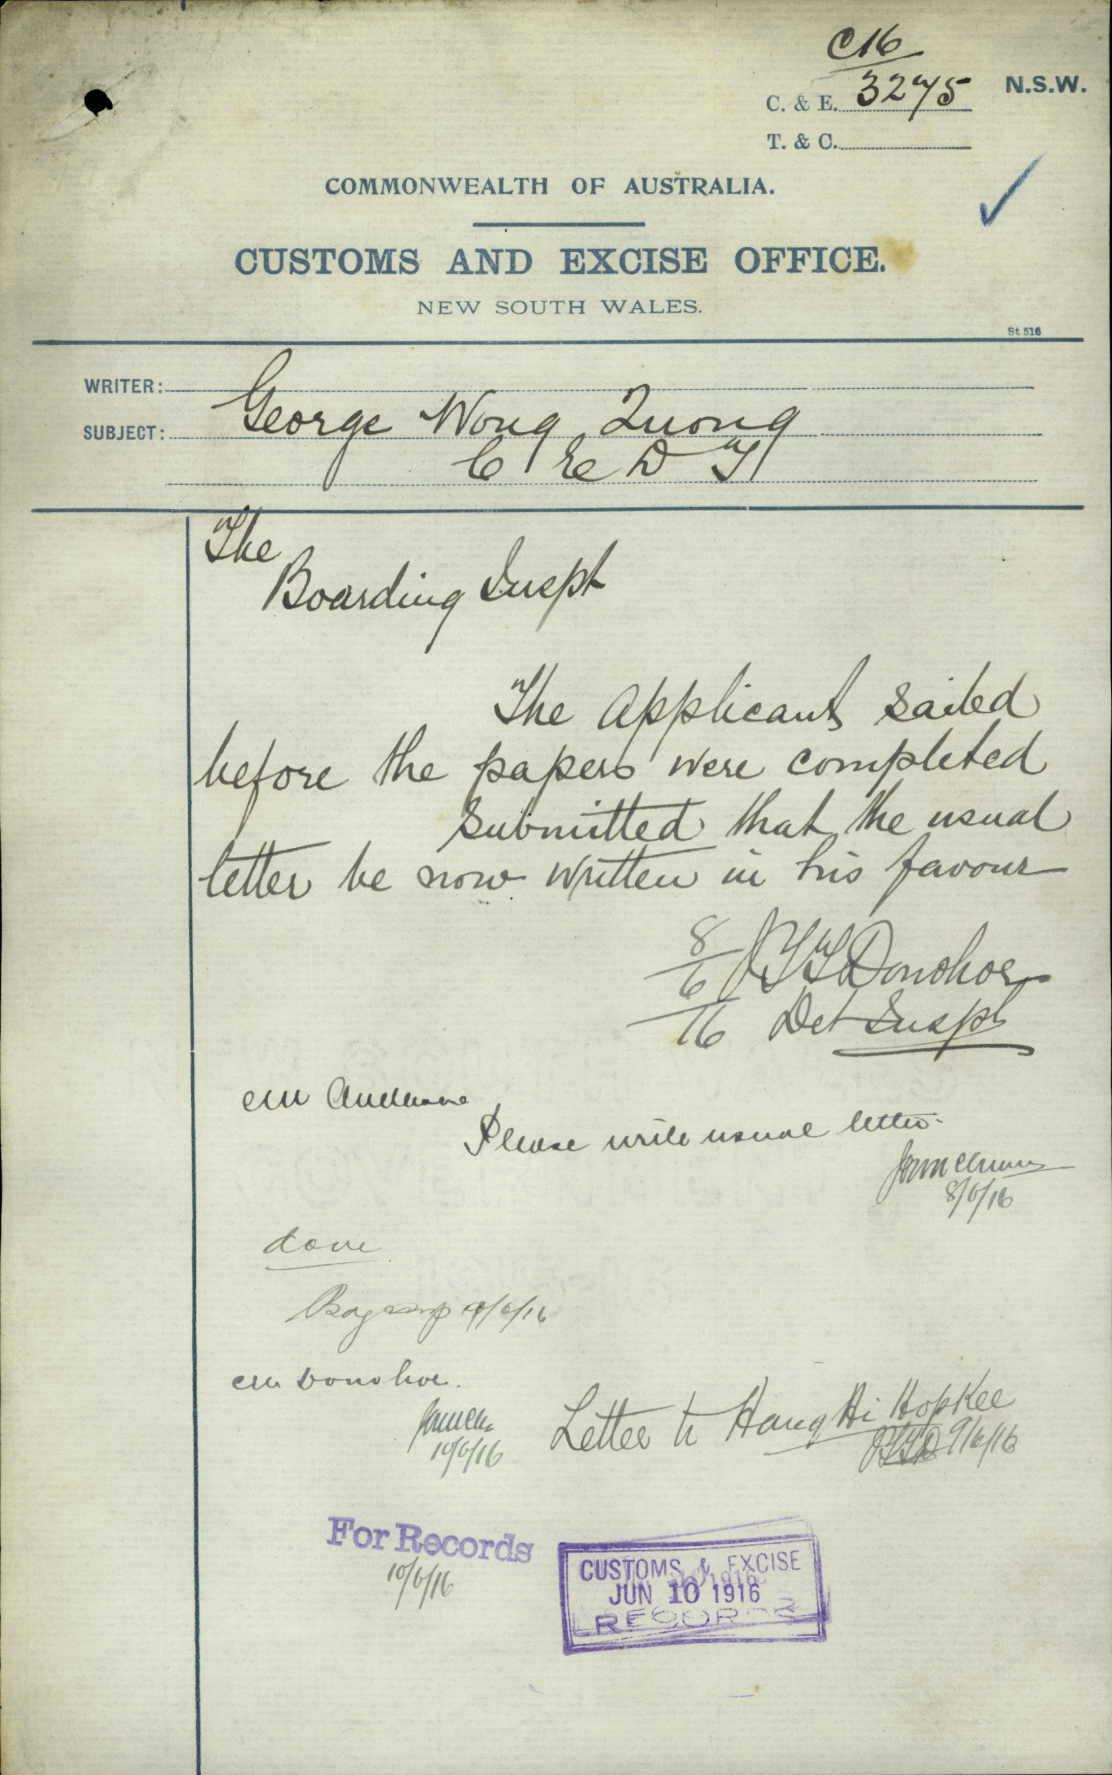 C16
C. & E. 3275 N.S.W.
T. & C.
COMMONWEALTH OF AUSTRALIA.
CUSTOMS AND EXCISE OFFICE.
NEW SOUTH WALES.
St 516
WRITER:
SUBJECT: George Wong Quong
C E D T
The
Boarding Inspt
The applicant sailed
before the papers were completed
Submitted that the usual
letter be now written in his favour
8/6/16 J T T Donohoe
Det Inspt
Please write usual letter.
8/6/16
done
9/6/16
Donohoe.
10/6/16
Letter to Hang Hi Hop Kee
JTTD 9/6/16
For Records
10/6/16
CUSTOMS & EXCISE
JUN 10 1916
RECORDS